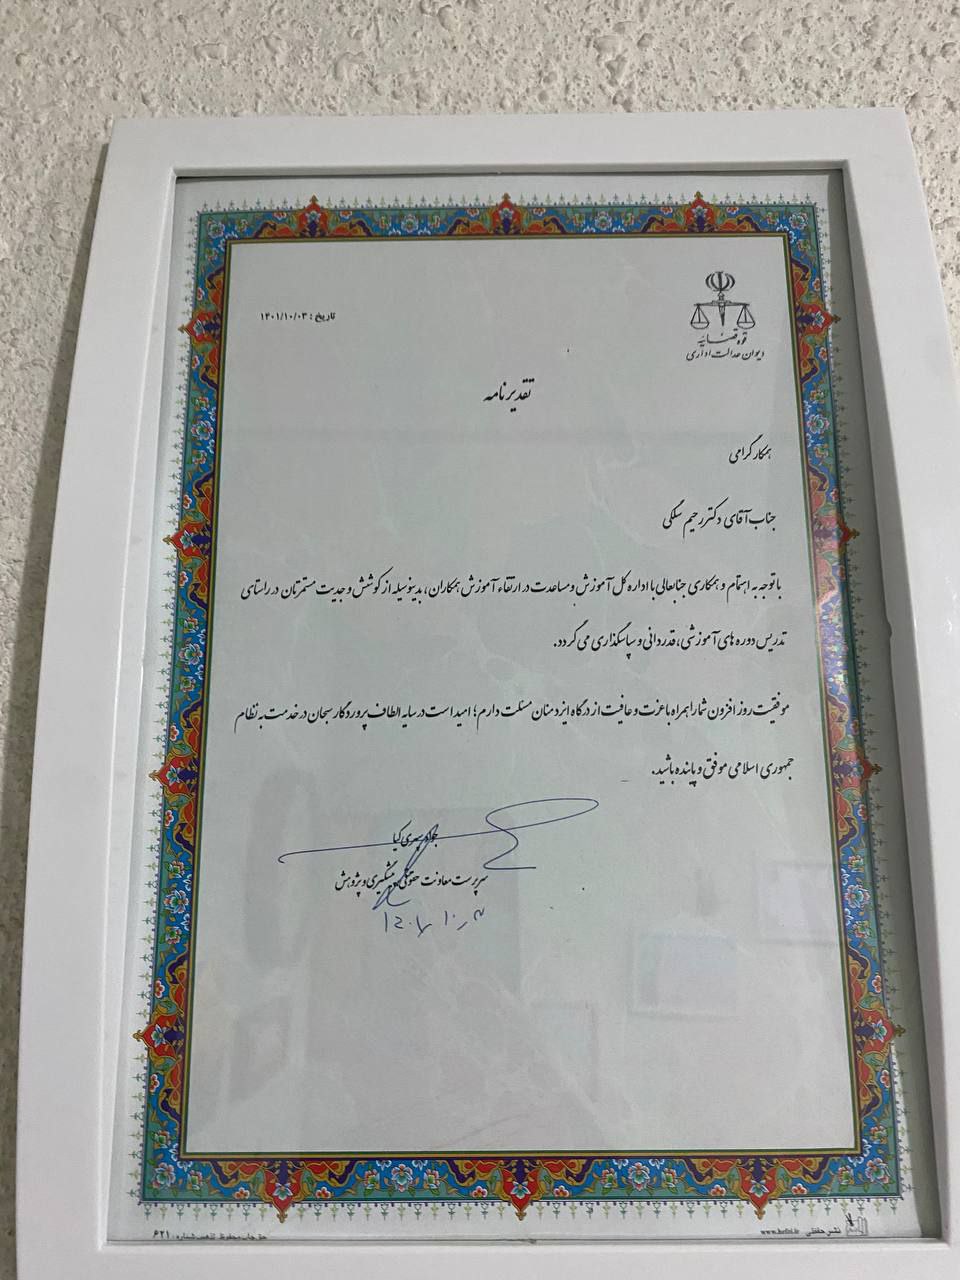 قوه قضائیه
دیوان عدالت اداری
تاریخ : ۱۴۰۱/۱۰/۰۳
تقدیرنامه
همکار گرامی
جناب آقای دکتر رحیم سلگی
با توجه به اهتمام و همکاری جنابعالی با اداره کل آموزش و مساعدت در ارتقاء آموزش همکاران، بدینوسیله از کوشش و جدیت مستمرتان در راستای
تدریس دوره های آموزشی، قدردانی و سپاسگذاری می گردد.
موفقیت روز افزون شما را همراه با عزت و عافیت از درگاه ایزد منان مسئلت دارم؛ امید است در سایه الطاف پروردگار سبحان در خدمت به نظام
جمهوری اسلامی موفق و پاینده باشید.
جواد سپهری کیا
سرپرست معاونت حقوقی، پیشگیری و پژوهش
نشر حافظی www.hefzi.ir
حق چاپ محفوظ تذهیب شماره: ۶۲۱